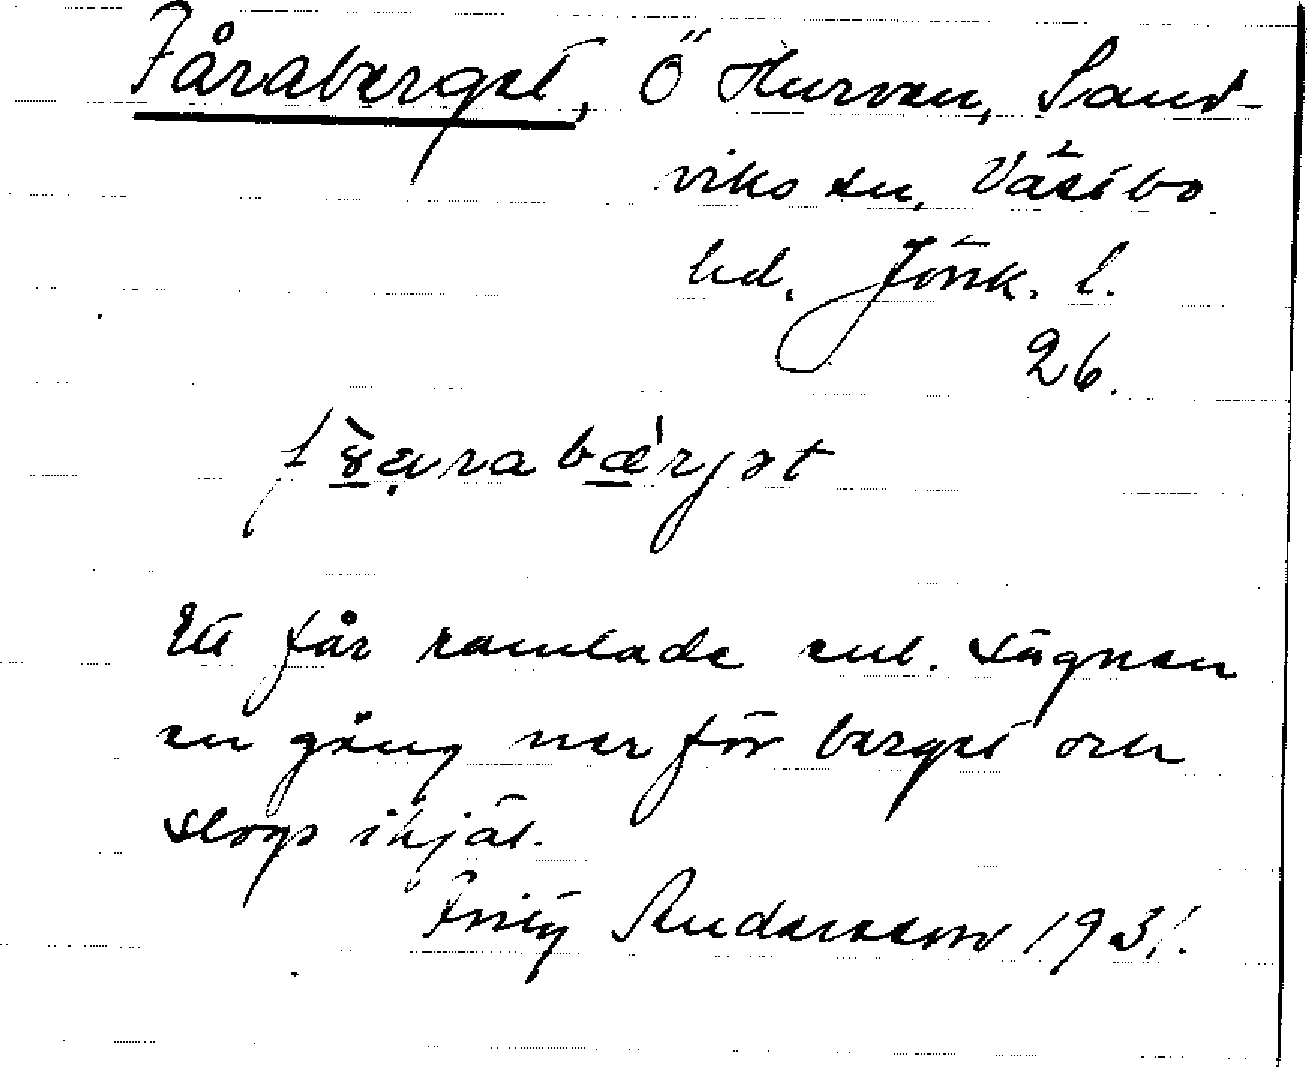 Fåraberget, Ö Hurven, Sand-
viks sn, Västbo
hd. Jönk. l.
26.
Ett får ramlade enl. sägnen
en gång ner för berget och
slogs ihjäl.
Fritz Andersson 1931.